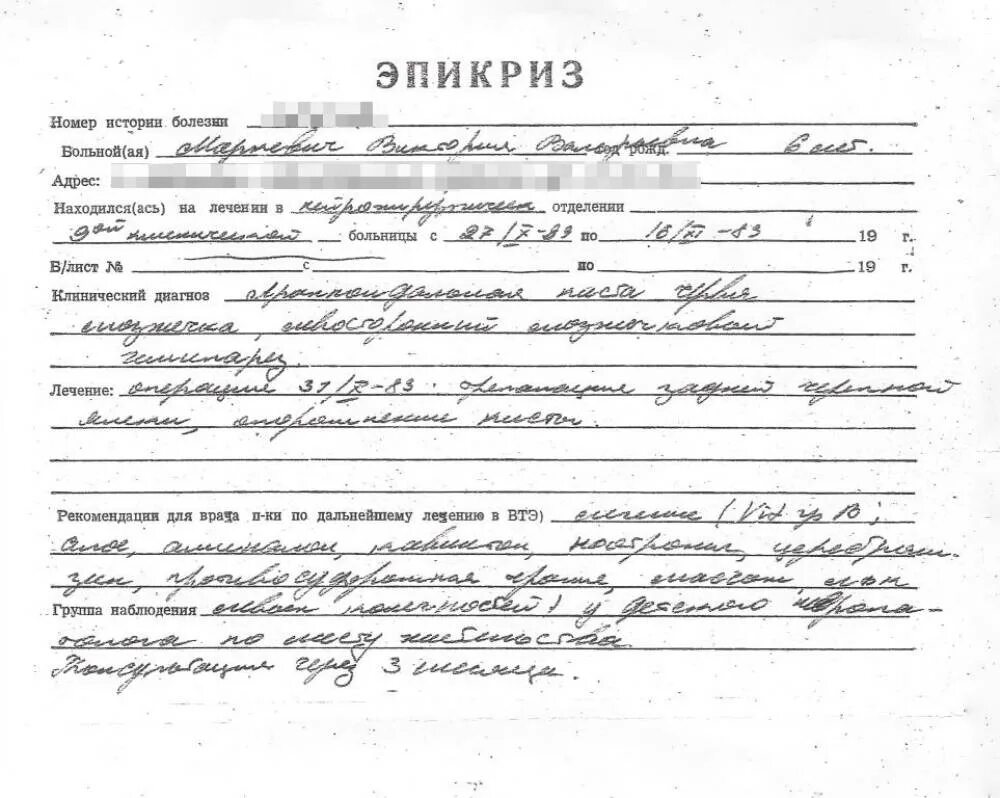 ЭПИКРИЗ
Номер истории болезни
Больной(ая) Марневич Виктория Год рожд. 6 лет.
Адрес:
Находился(ась) на лечении в нейрохирургическ отделении
9ой клинической больницы с 27/X-83 по 16/XI-83 19 г.
Б/лист № с по 19 г.
Клинический диагноз Арахноидальная киста червя
мозжечка, левосторонний мозжечковый
гемипарез.
Лечение: операция 31/X-83. трепанация задней черепной
ямки, опорожнение кисты.
Рекомендации для врача п-ки по дальнейшему лечению в ВТЭ) лечение (Vit гр В,
алоэ, аминалон, кавинтон, ноотропил, церебролизин,
противосудорожная массаж
Группа наблюдения левых конечностей) у детского невропа-
толога по месту жительства.
Консультация через 3 месяца.